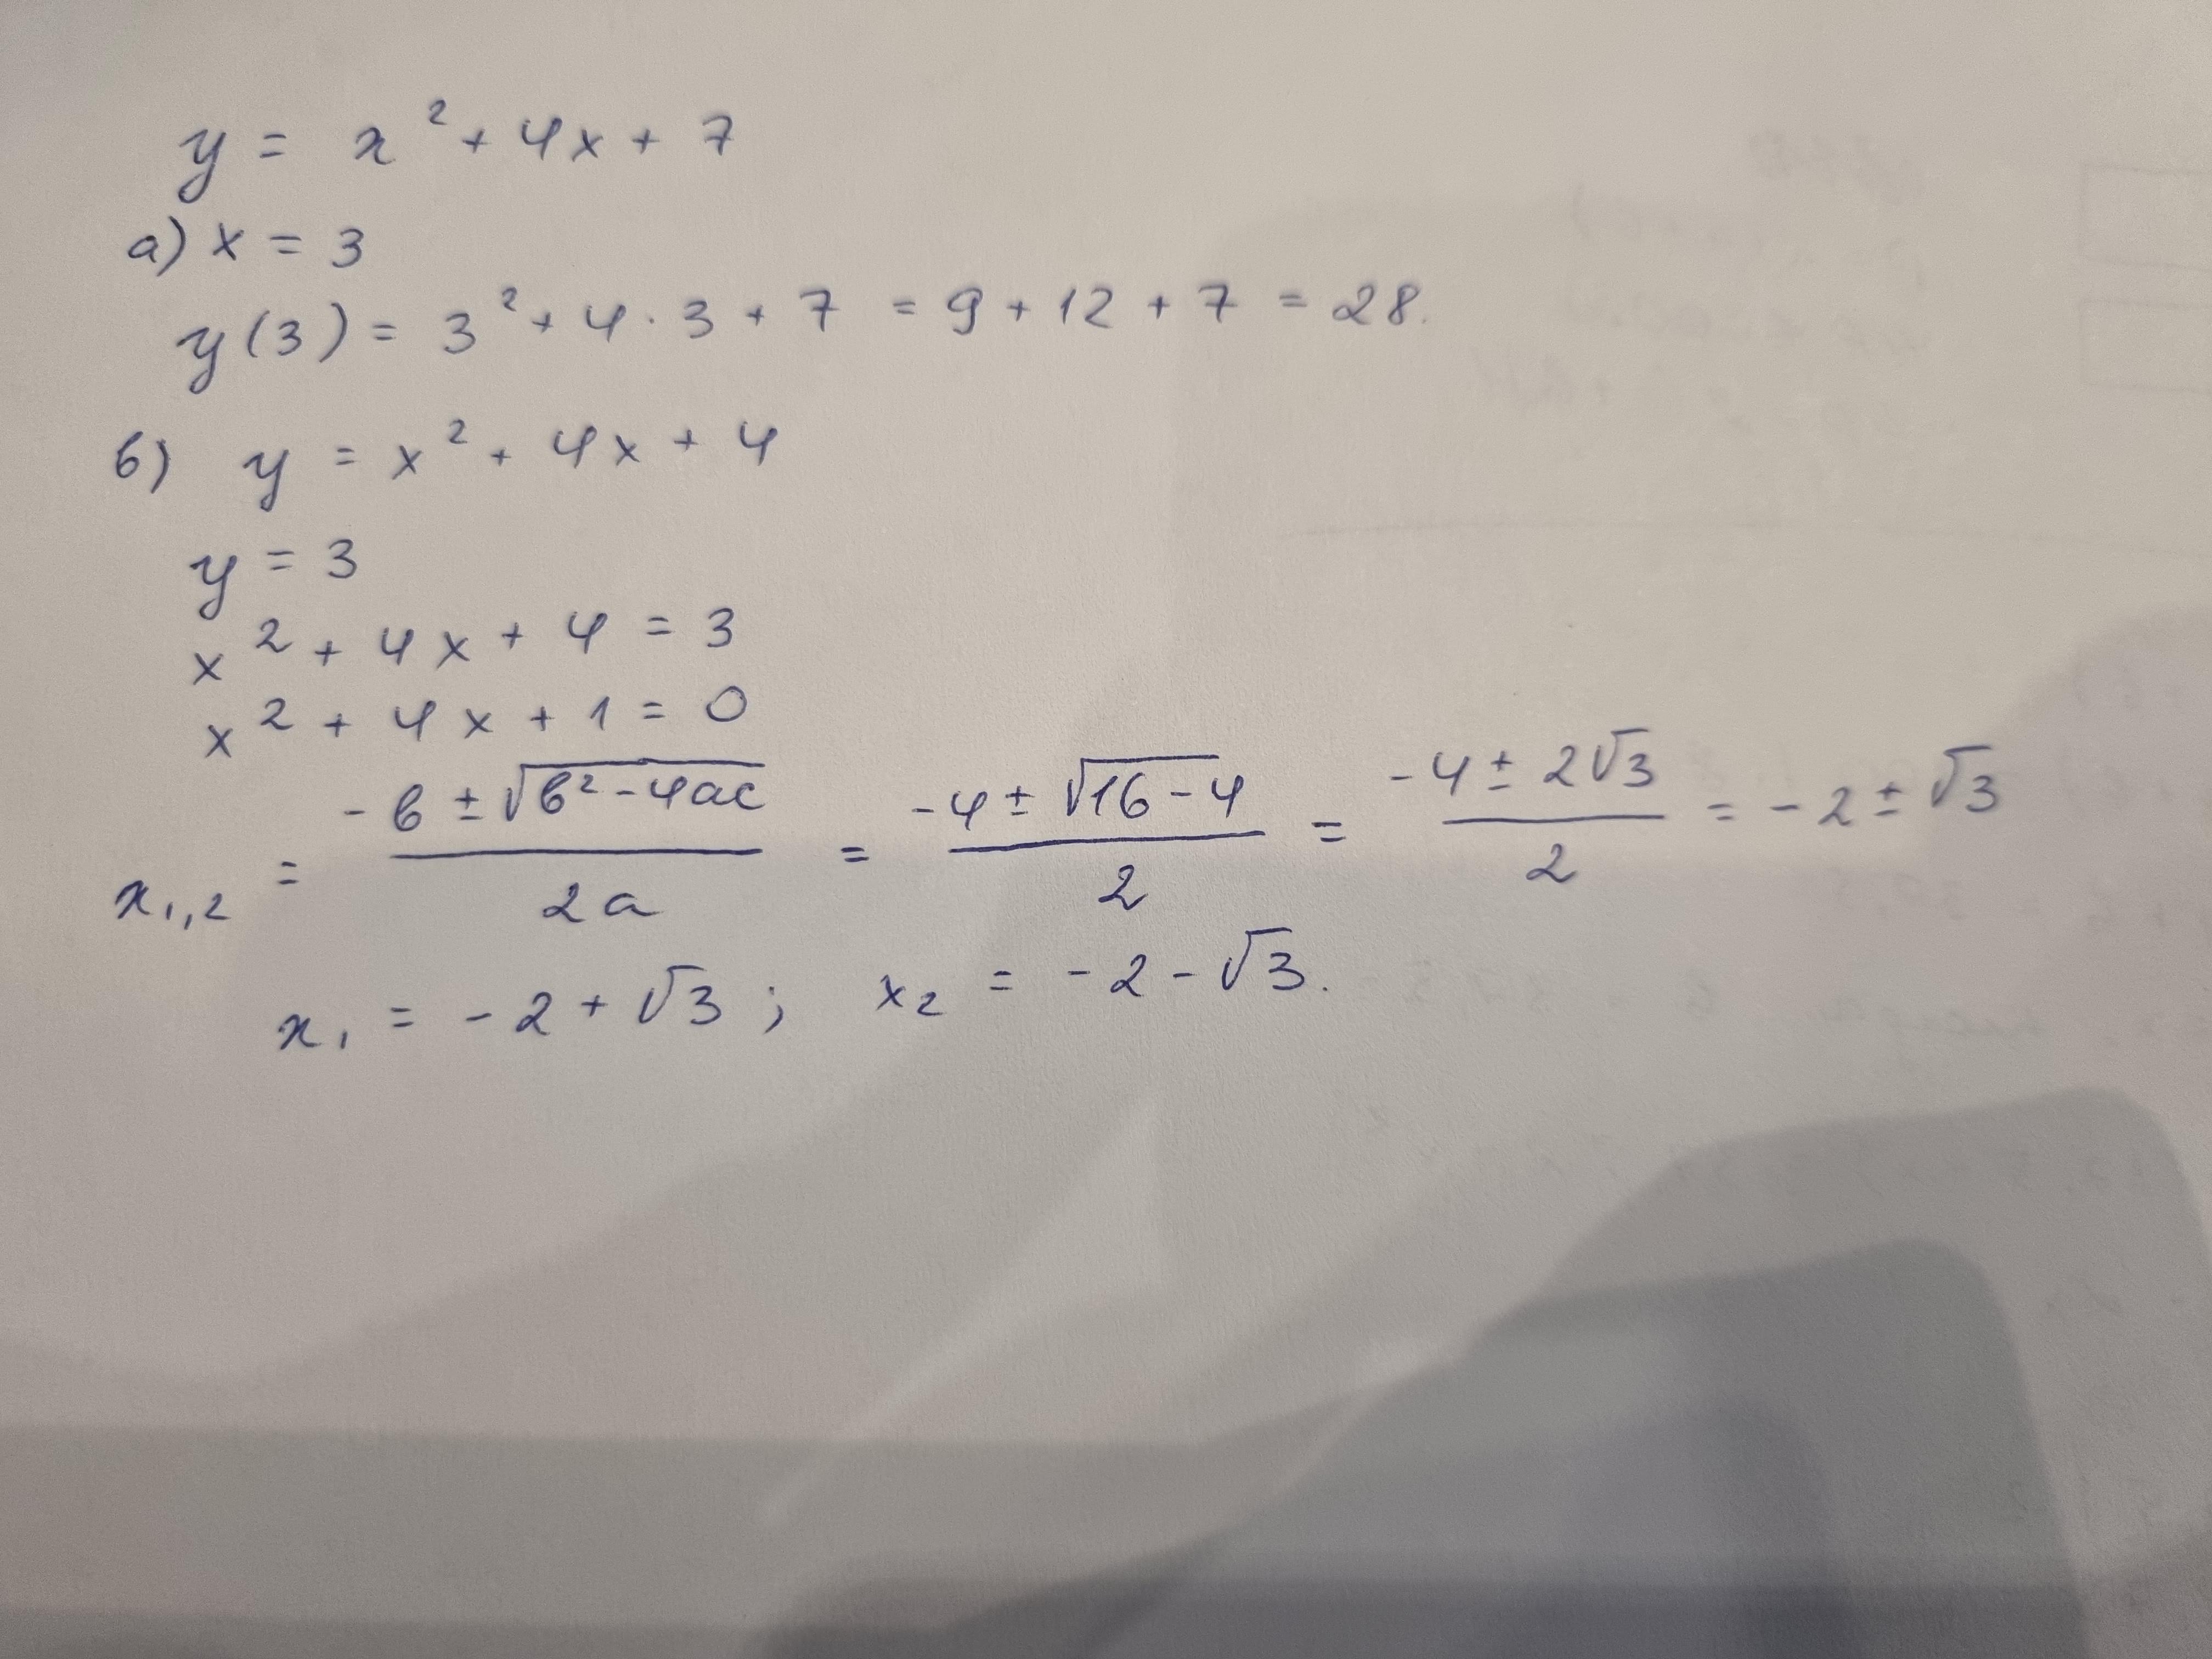 y = x² + 4x + 7
a) x = 3
y(3) = 3² + 4 · 3 + 7 = 9 + 12 + 7 = 28.
б) y = x² + 4x + 4
y = 3
x² + 4x + 4 = 3
x² + 4x + 1 = 0
x₁,₂ = (-b ± √(b² - 4ac)) / 2a = (-4 ± √(16 - 4)) / 2 = (-4 ± 2√3) / 2 = -2 ± √3
x₁ = -2 + √3 ; x₂ = -2 - √3.